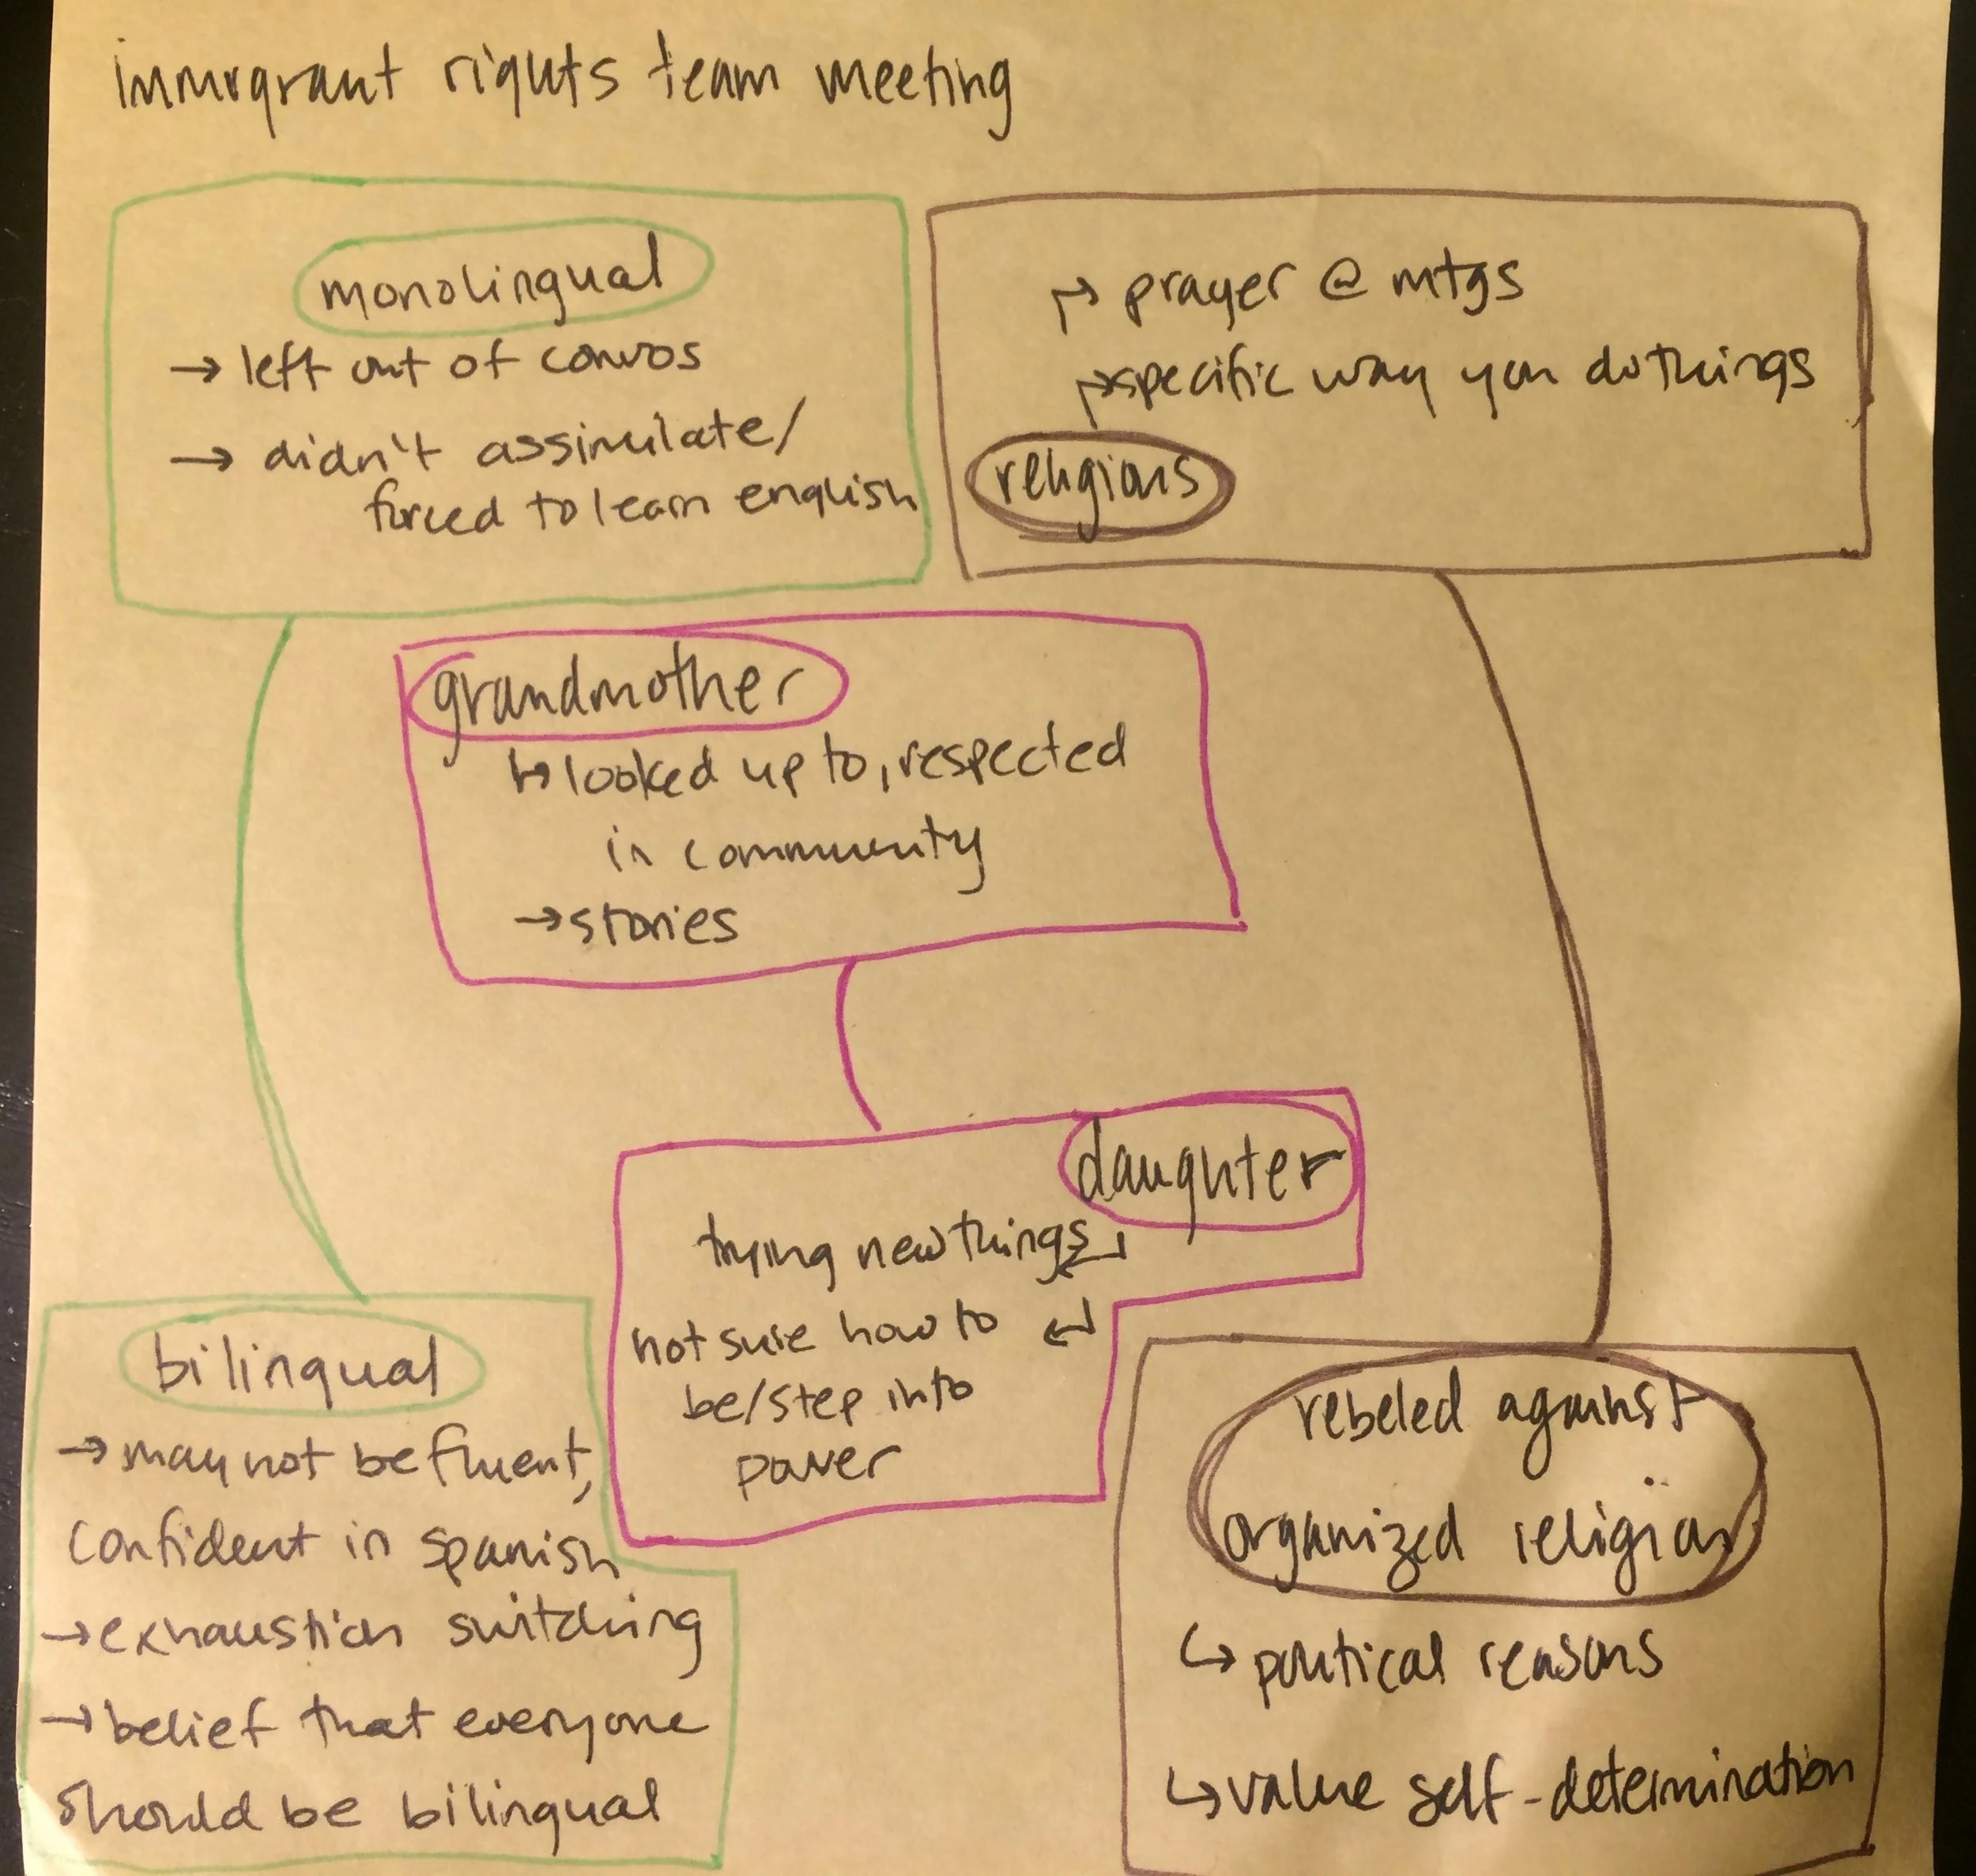 immigrant rights team meeting
monolingual
→ left out of convos
→ didn't assimilate/
forced to learn english
↱ prayer @ mtgs
↱ specific way you do things
religious
grandmother
↳ looked up to, respected
in community
→ stories
daughter
trying new things ↵
not sure how to ↵
be/step into
power
bilingual
→ may not be fluent,
confident in spanish
→ exhaustion switching
→ belief that everyone
should be bilingual
rebeled against
organized religion
↳ political reasons
↳ value self-determination